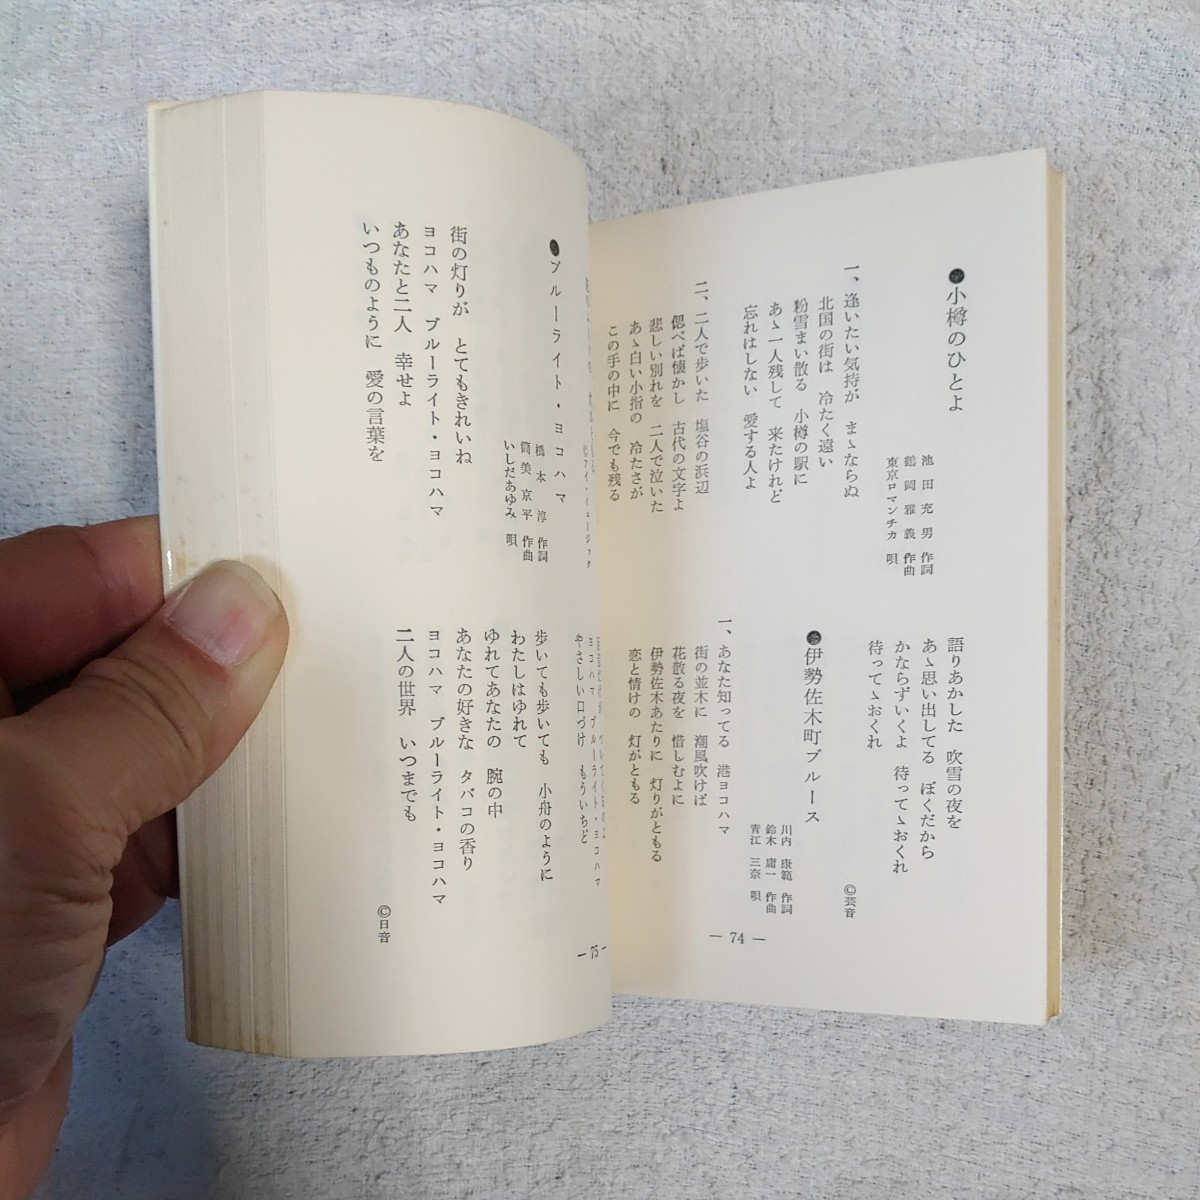 ●小樽のひとよ
池田充男 作詞
鶴岡雅義 作曲
東京ロマンチカ 唄
一、逢いたい気持が まゝならぬ
北国の街は 冷たく遠い
粉雪まい散る 小樽の駅に
あゝ一人残して 来たけれど
忘れはしない 愛する人よ
二、二人で歩いた 塩谷の浜辺
偲べば懐かし 古代の文字よ
悲しい別れを 二人で泣いた
あゝ白い小指の 冷たさが
この手の中に 今でも残る
語りあかした 吹雪の夜を
あゝ思い出してる ぼくだから
かならずいくよ 待ってゝおくれ
待ってゝおくれ
©芸音
●伊勢佐木町ブルース
川内康範 作詞
鈴木庸一 作曲
青江三奈 唄
一、あなた知ってる 港ヨコハマ
街の並木に 潮風吹けば
花散る夜を 惜しむよに
伊勢佐木あたりに 灯りがともる
恋と情けの 灯がともる
— 74 —
●ブルーライト・ヨコハマ
橋本淳 作詞
筒美京平 作曲
いしだあゆみ 唄
街の灯りが とてもきれいね
ヨコハマ ブルーライト・ヨコハマ
あなたと二人 幸せよ
いつものように 愛の言葉を
ヨコハマ ブルーライト・ヨコハマ
やさしい口づけ もういちど
歩いても歩いても 小舟のように
わたしはゆれて
ゆれてあなたの 腕の中
あなたの好きな タバコの香り
ヨコハマ ブルーライト・ヨコハマ
二人の世界 いつまでも
©日音
— 75 —